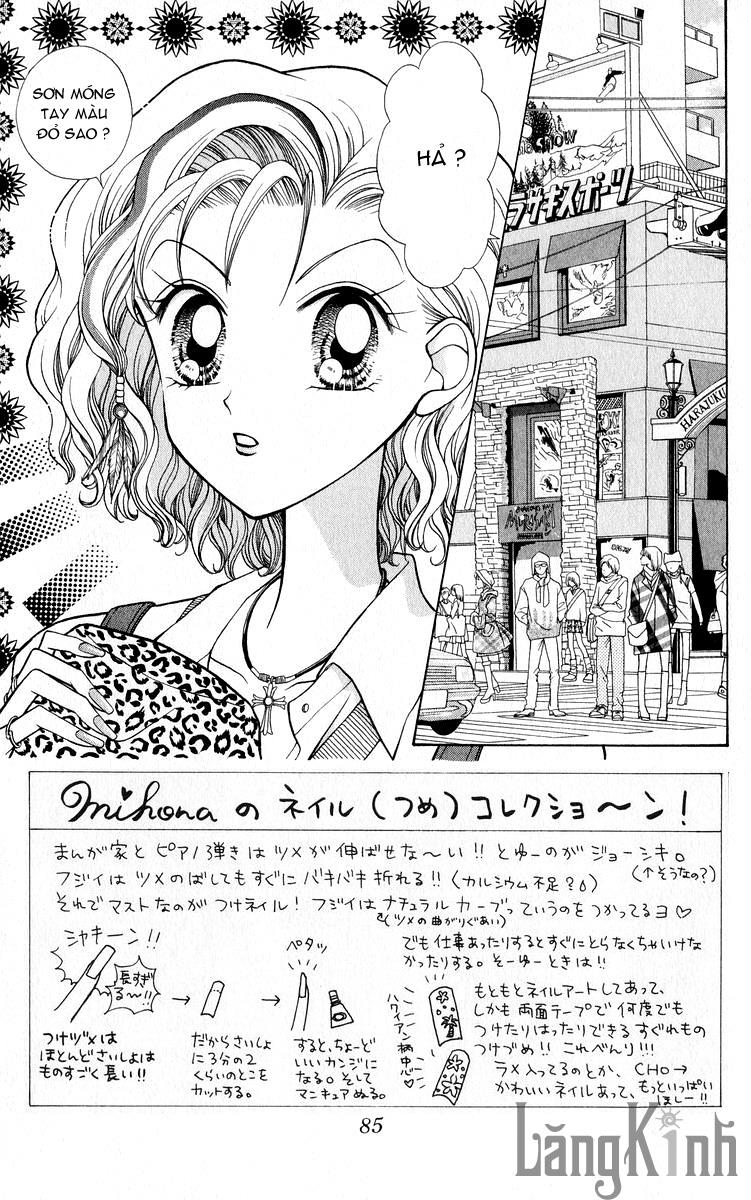 SƠN MÓNG
TAY MÀU
ĐỎ SAO ?
HẢ ?
SNOW
ラサキスポーツ
HARAJUKU
mihona の ネイル (つめ) コレクショ〜ン!
まんが家と ピアノ弾きは ツメが 伸ばせな〜い!! とゆーのが ジョーシキ。
(↑そうなの?)
フジイは ツメのばしてもすぐに バキバキ 折れる!! (カルシウム不足?)
それで マストなのが つけネイル! フジイは ナチュラル カーブっていうのをつかってるヨ♡
(ツメの曲がりぐあい)
シャキーン!!
長すぎ
る〜!!
つけヅメは
ほとんどさいしょは
ものすごく長い!!
→
だからさいしょ
に3分の2
くらいのとこを
カットする。
→
ペタッ
すると、ちょーど
いいカンジに
なる。そして
マニキュアぬる。
でも仕事あったりするとすぐにとらなくちゃいけな
かったりする。そーゆーときは!!
ハワイアン柄中心♡
もともとネイルアートしてあって、
しかも 両面テープで 何度でも
つけたりはったりできる すぐれもの
つけづめ!! これべんり!!!
ラメ入ってるのとか、CHO→
かわいいネイルあって、もっといっぱい
ほしー!!
85
LăngKính